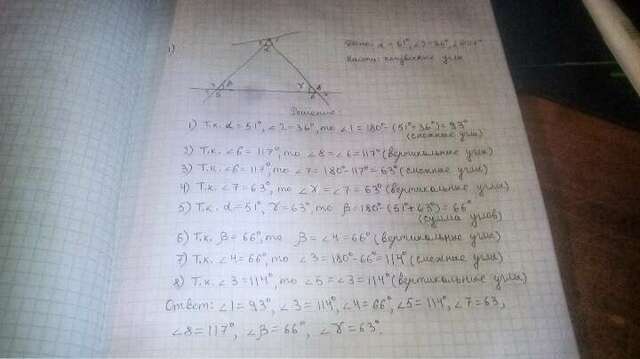 1)
Дано: α=51°, ∠2=36°, ∠6=117°
Найти: неизвестные углы
Решение:
1) Т.к. α=51°, ∠2=36°, то ∠1=180°-(51°+36°)=93°
(смежные углы)
2) Т.к. ∠6=117°, то ∠8=∠6=117° (вертикальные углы)
3) Т.к. ∠6=117°, то ∠7=180°-117°=63° (смежные углы)
4) Т.к. ∠7=63°, то ∠γ=∠7=63° (вертикальные углы)
5) Т.к. α=51°, γ=63°, то β=180°-(51°+63°)=66°
(сумма углов)
6) Т.к. β=66°, то β=∠4=66° (вертикальные углы)
7) Т.к. ∠4=66°, то ∠3=180°-66°=114° (смежные углы)
8) Т.к. ∠3=114°, то ∠5=∠3=114° (вертикальные углы)
Ответ: ∠1=93°, ∠3=114°, ∠4=66°, ∠5=114°, ∠7=63,
∠8=117°, ∠β=66°, ∠γ=63°.